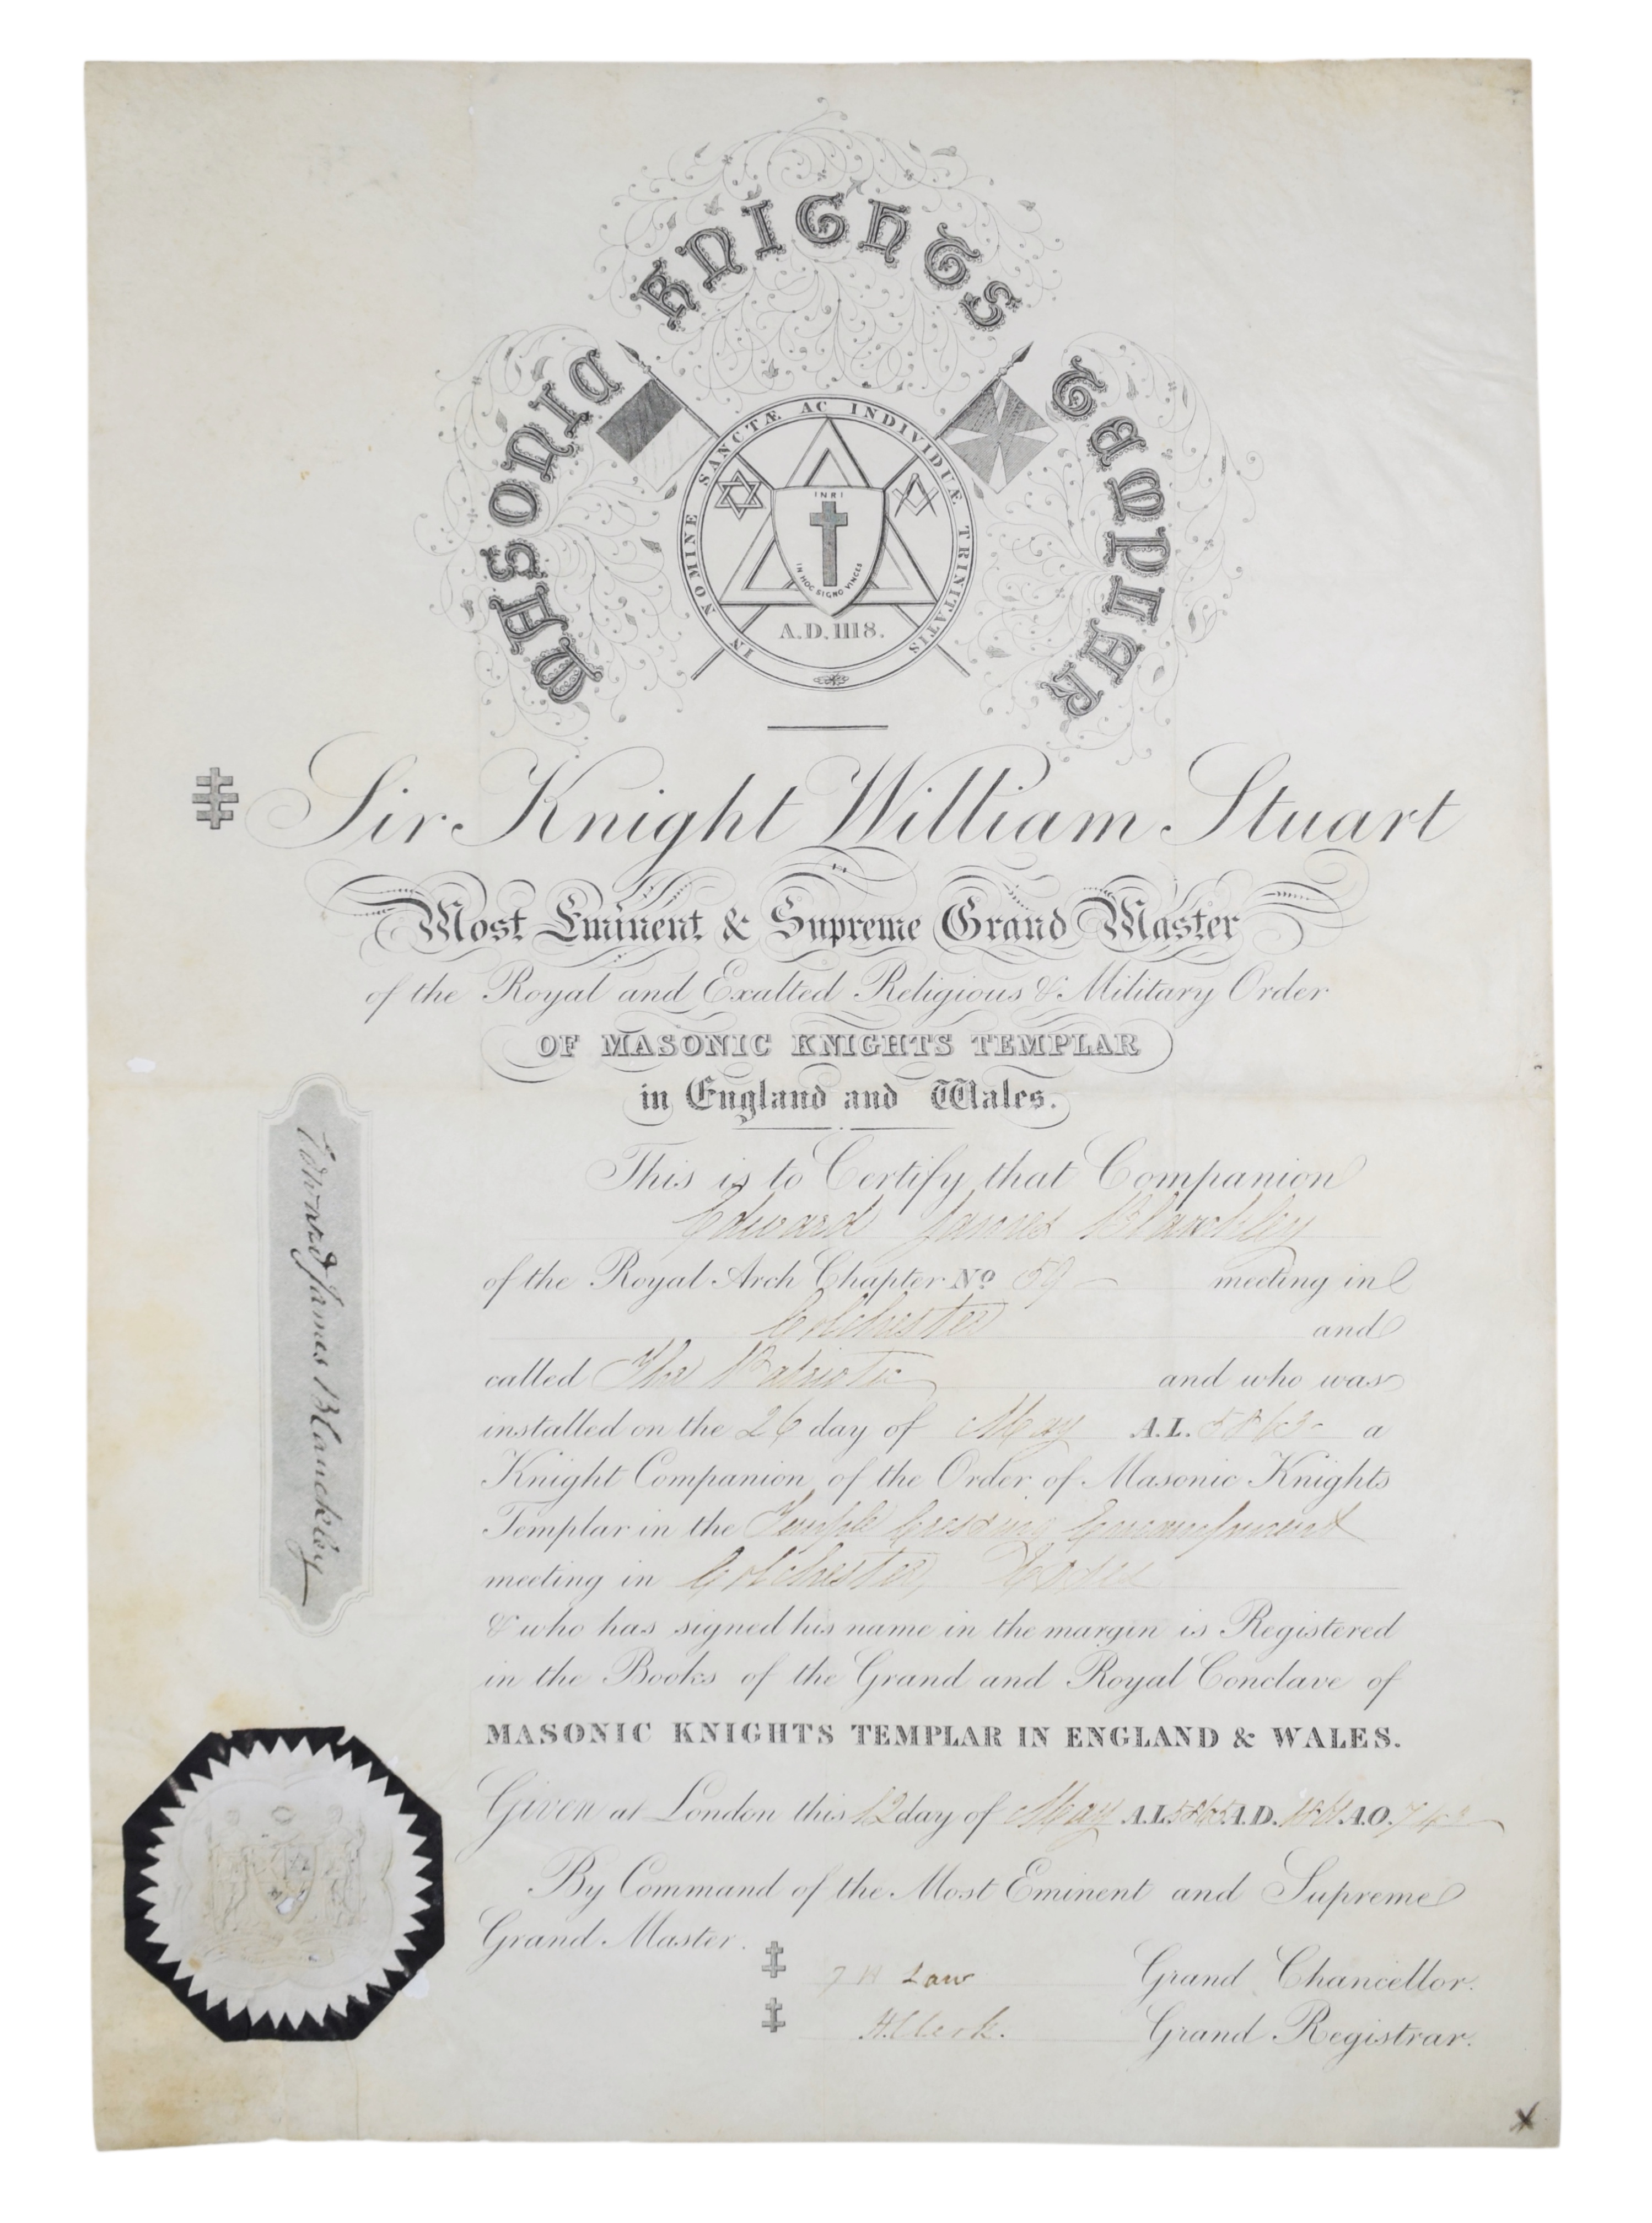 MASONIC KNIGHTS TEMPLAR
IN NOMINE SANCTÆ AC INDIVIDUÆ TRINITATIS
INRI
IN HOC SIGNO VINCES
A.D. 1118.
Sir Knight William Stuart
Most Eminent & Supreme Grand Master
of the Royal and Exalted Religious & Military Order
OF MASONIC KNIGHTS TEMPLAR
in England and Wales.
This is to Certify that Companion
Edward James Blanckley
of the Royal Arch Chapter No 59 meeting in
Colchester and
called The Patriotic and who was
installed on the 26 day of May A.L. a
Knight Companion of the Order of Masonic Knights
Templar in the Temple Cressing Encampment
meeting in Colchester, Essex
& who has signed his name in the margin is Registered
in the Books of the Grand and Royal Conclave of
MASONIC KNIGHTS TEMPLAR IN ENGLAND & WALES.
Given at London this 12 day of May A.L. A.D. A.O.
By Command of the Most Eminent and Supreme
Grand Master.
Law Grand Chancellor.
H Clerk. Grand Registrar.
Edward James Blanckley